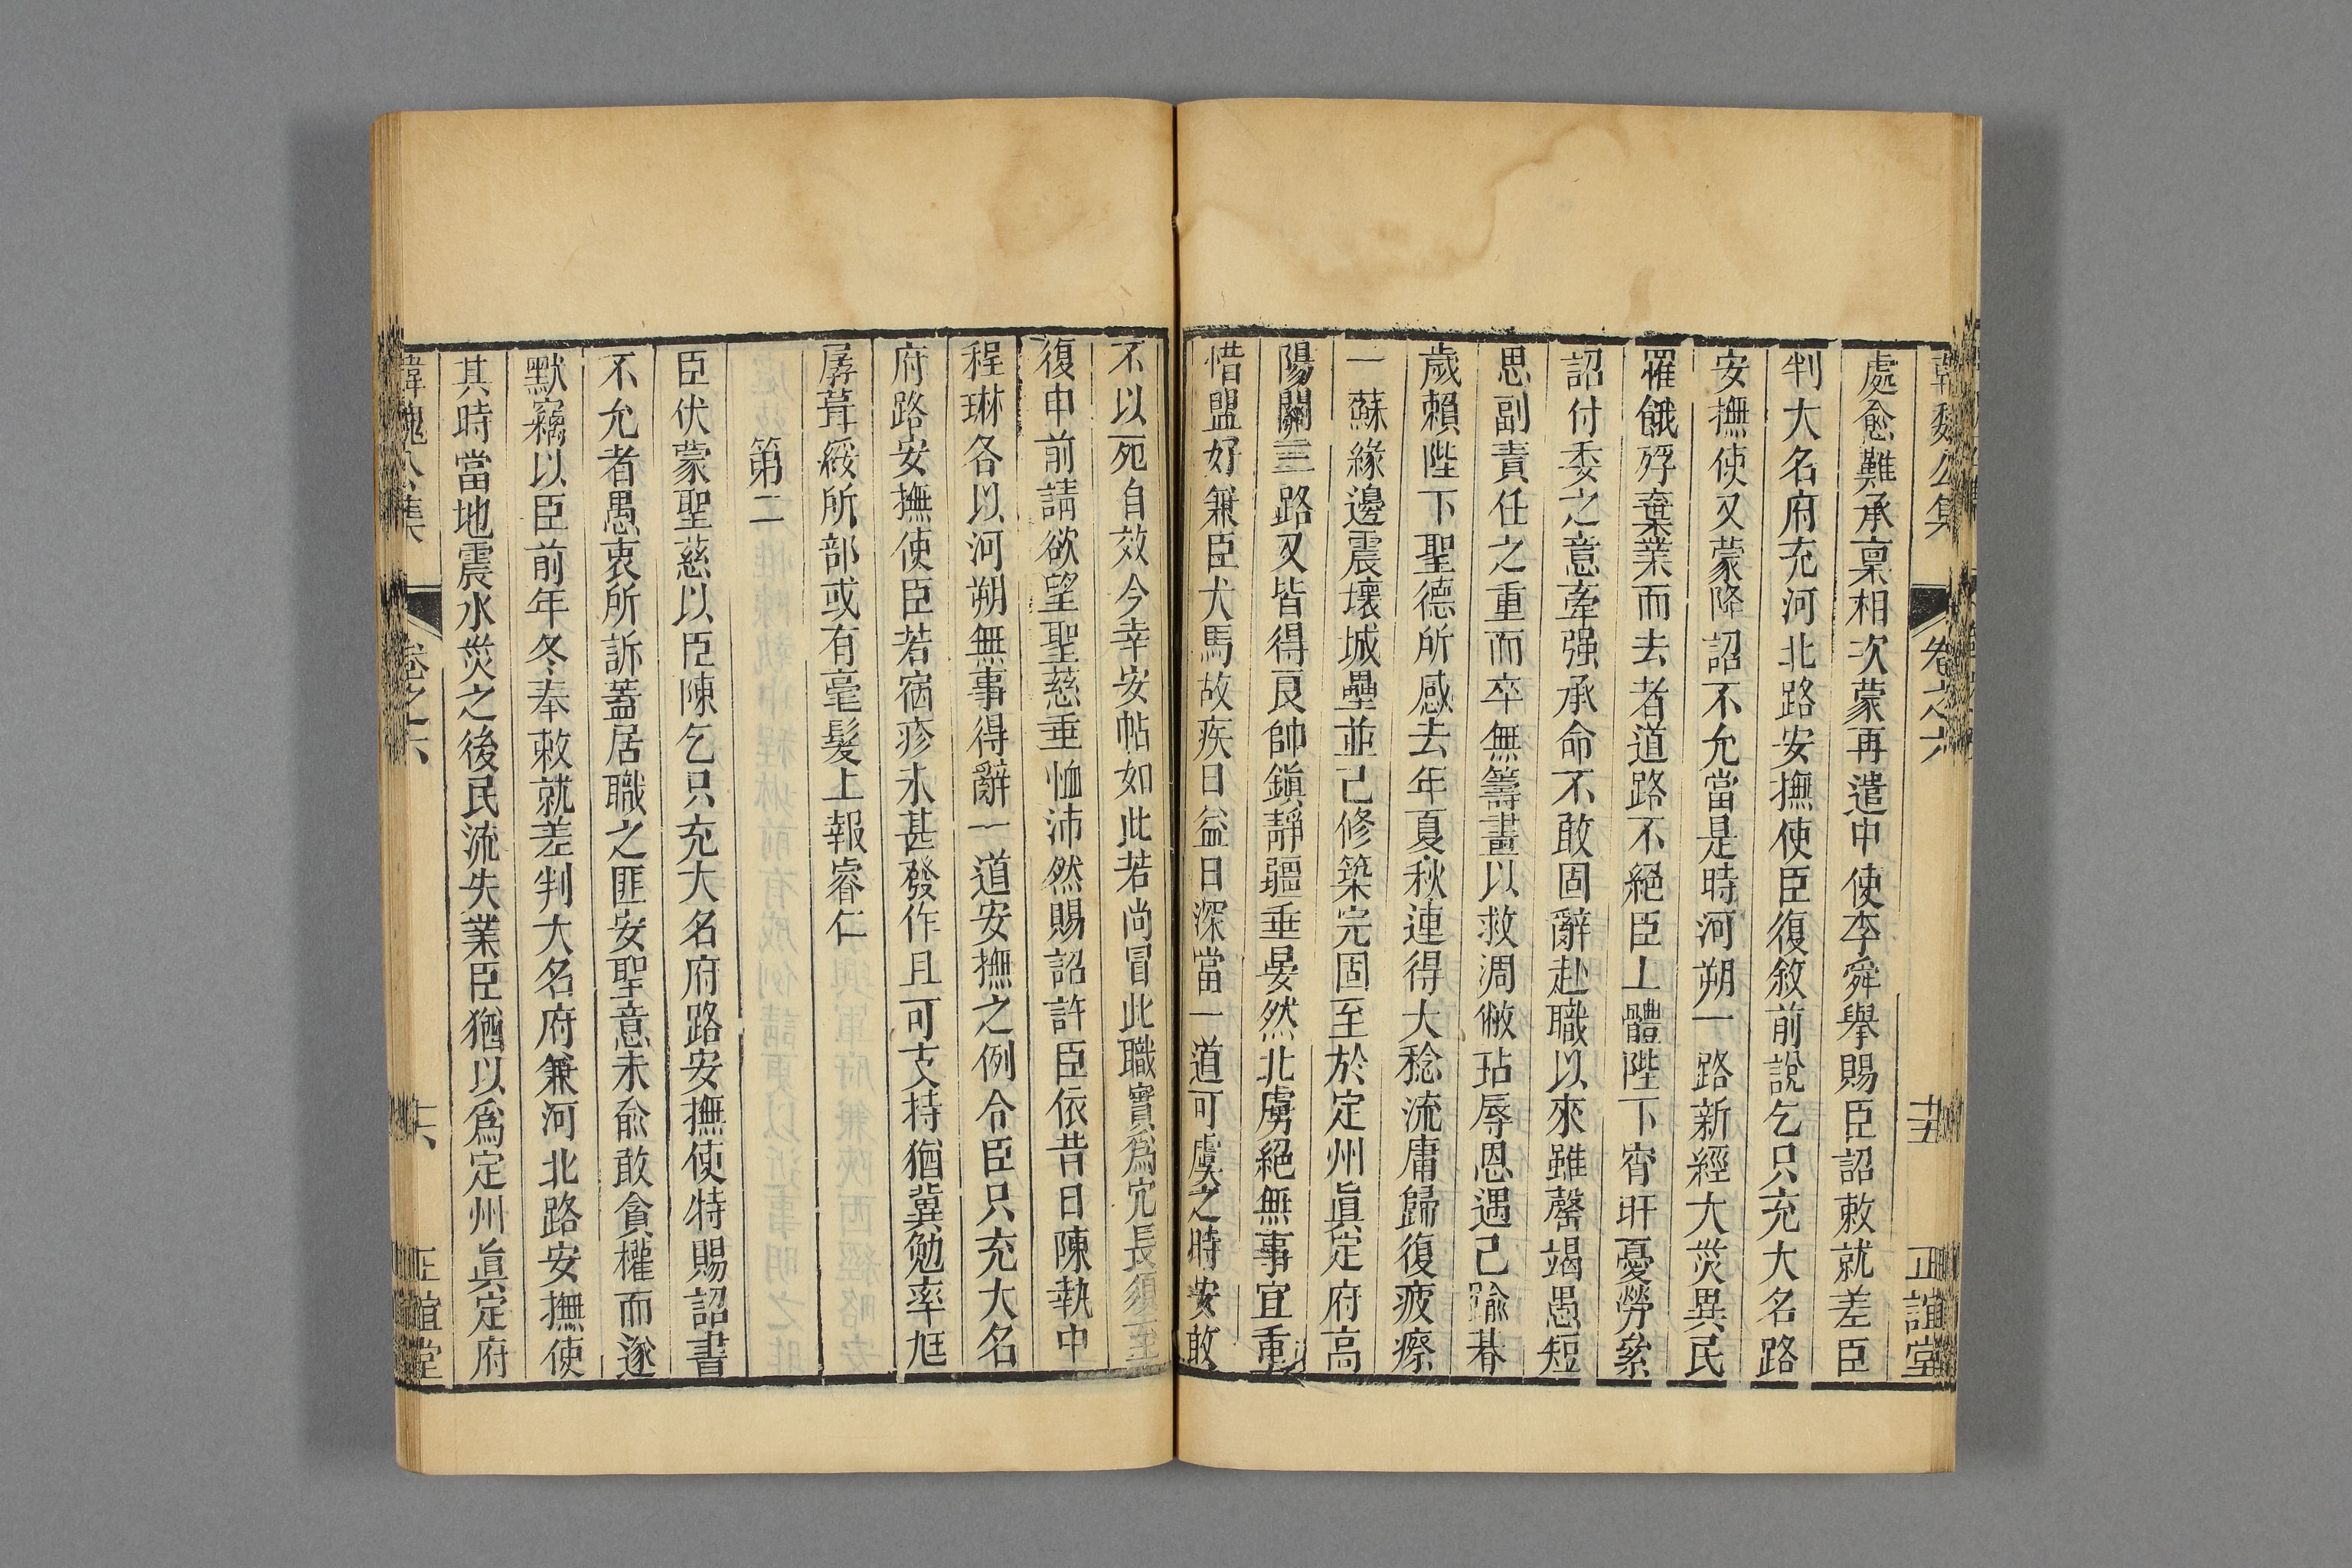 韓魏公集 卷之六 十五 正誼堂
處愈難承稟相次蒙再遣中使李舜舉賜臣詔敕就差臣
判大名府充河北路安撫使臣復敘前說乞只充大名路
安撫使又蒙降詔不允當是時河朔一路新經大災異民
罹餓殍棄業而去者道路不絕臣上體陛下宵旰憂勞絫
詔付委之意牽强承命不敢固辭赴職以來雖罄竭愚短
思副責任之重而卒無籌畫以救凋僘玷辱恩遇已踰朞
歲賴陛下聖德所感去年夏秋連得大稔流庸歸復疲瘵
一蘇緣邊震壞城壘並已修築完固至於定州眞定府高
陽關三路又皆得良帥鎭靜疆垂晏然北虜絕無事宜重
惜盟好兼臣犬馬故疾日益日深當一道可虞之時安敢
不以死自效今幸安帖如此若尚冒此職實爲宂長須至
復申前請欲望聖慈垂恤沛然賜詔許臣依昔日陳執中
程琳各以河朔無事得辭一道安撫之例令臣只充大名
府路安撫使臣若宿疹未甚發作且可支持猶冀勉率尫
孱葺綏所部或有毫髮上報睿仁
第二
臣伏蒙聖慈以臣陳乞只充大名府路安撫使特賜詔書
不允者愚衷所訴蓋居職之匪安聖意未兪敢貪權而遂
默竊以臣前年冬奉敕就差判大名府兼河北路安撫使
其時當地震水災之後民流失業臣猶以爲定州眞定府
韓魏公集 卷之六 十六 正誼堂